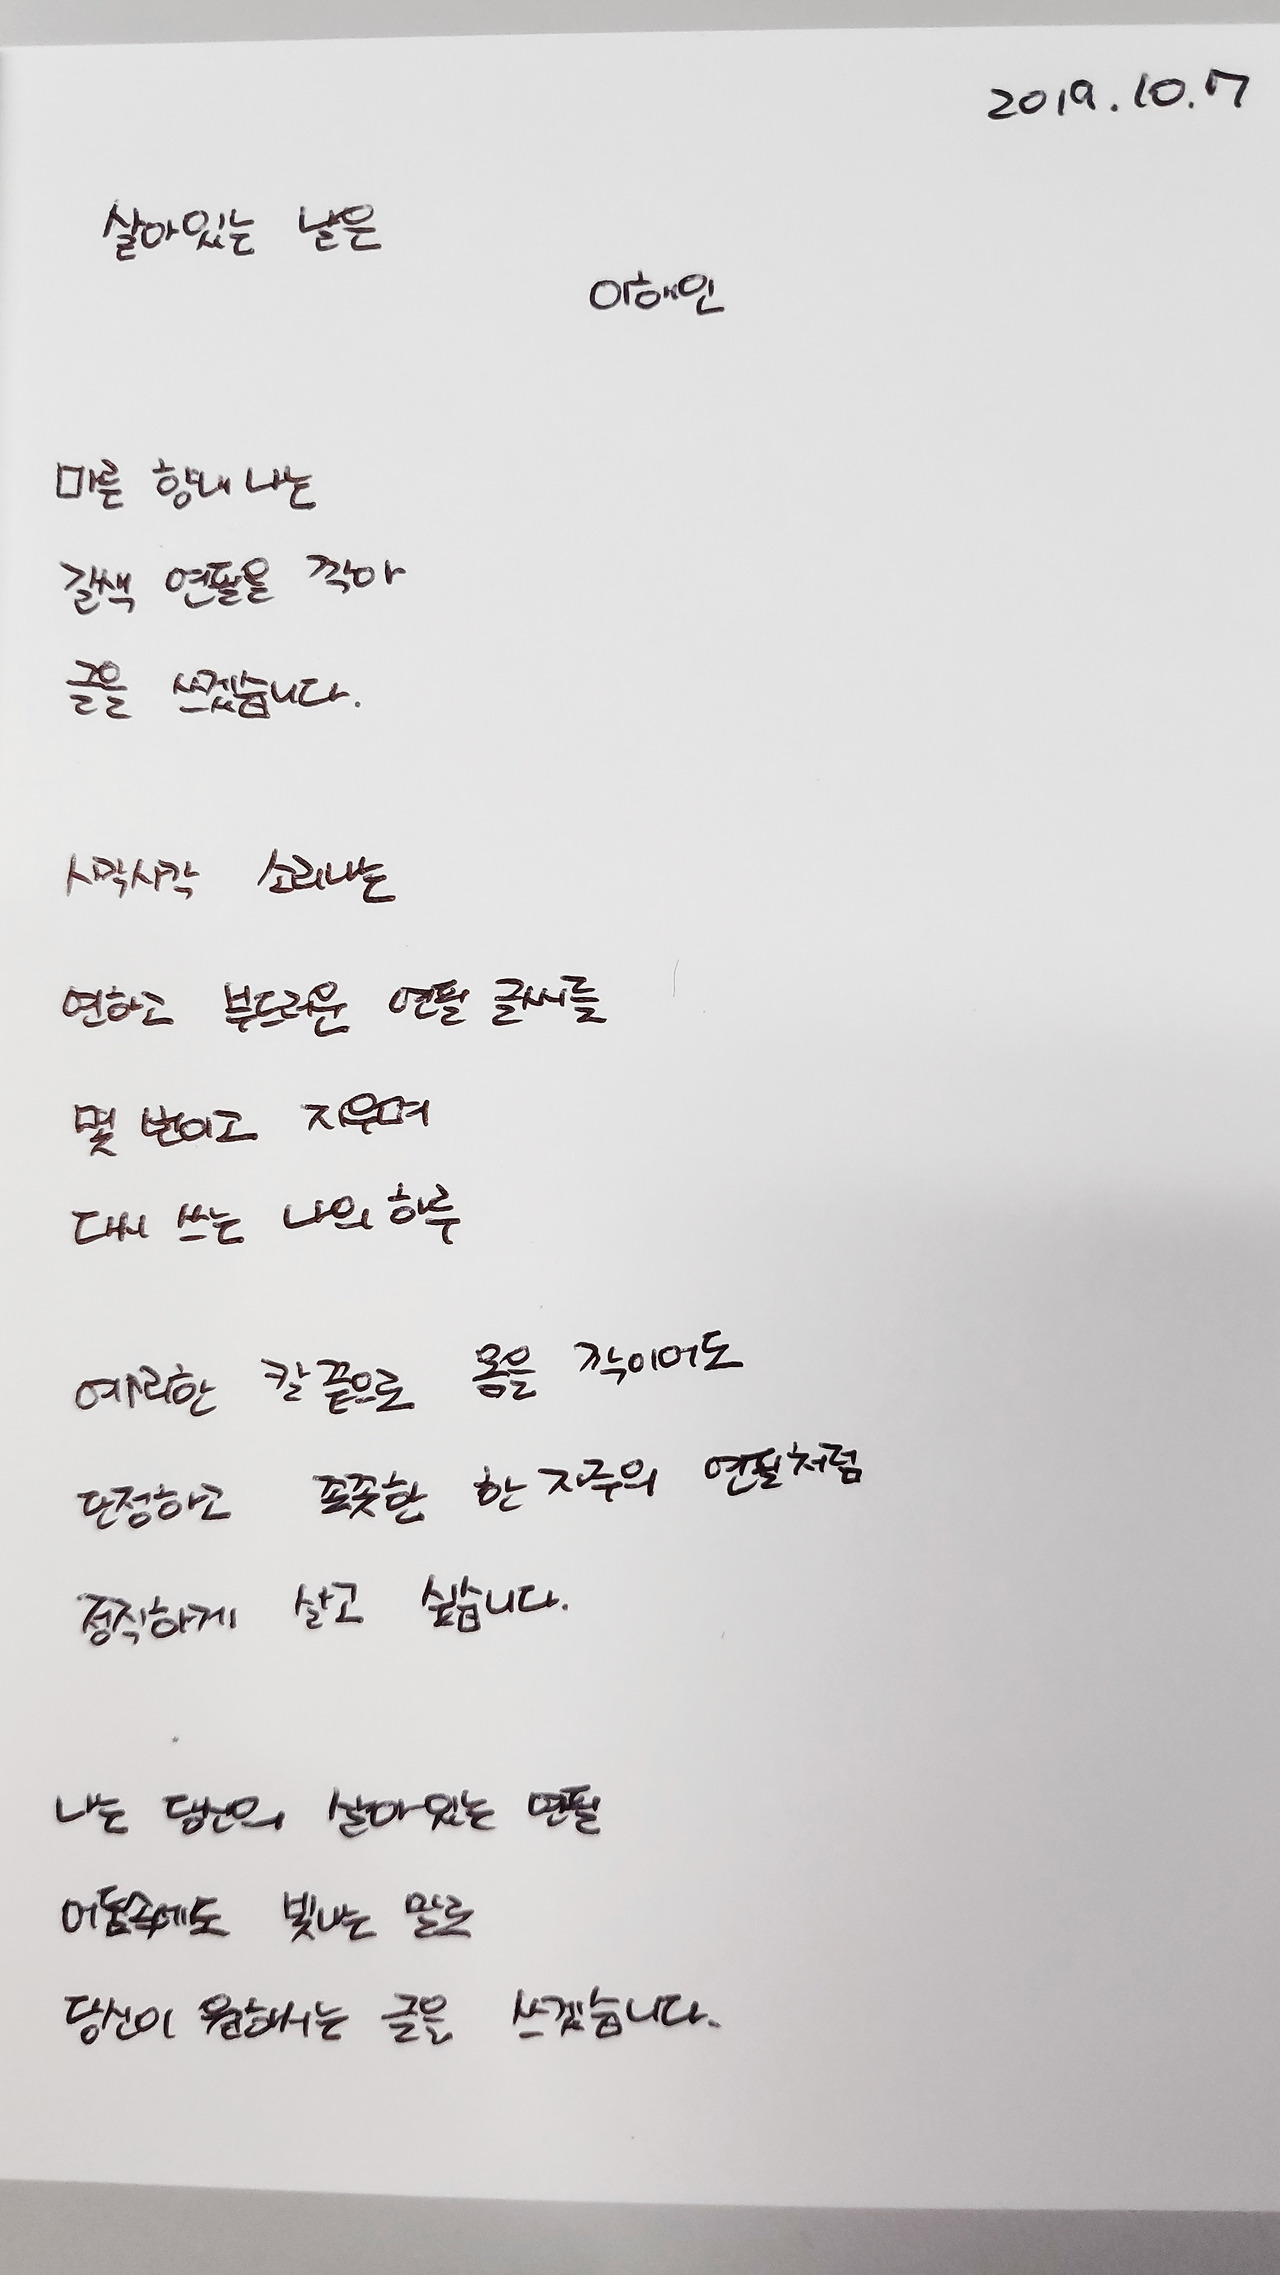 2019.10.7
살아있는 날은
이해인
마른 향내 나는
갈색 연필을 깍아
글을 쓰겠습니다.
사각사각 소리나는
연하고 부드러운 연필 글씨를
몇 번이고 지우며
다시 쓰는 나의 하루
예리한 칼끝으로 몸을 깍이어도
단정하고 꼿꼿한 한 자루의 연필처럼
정직하게 살고 싶습니다.
나는 당신의 살아있는 연필
어둠속에도 빛나는 말로
당신이 원하시는 글을 쓰겠습니다.